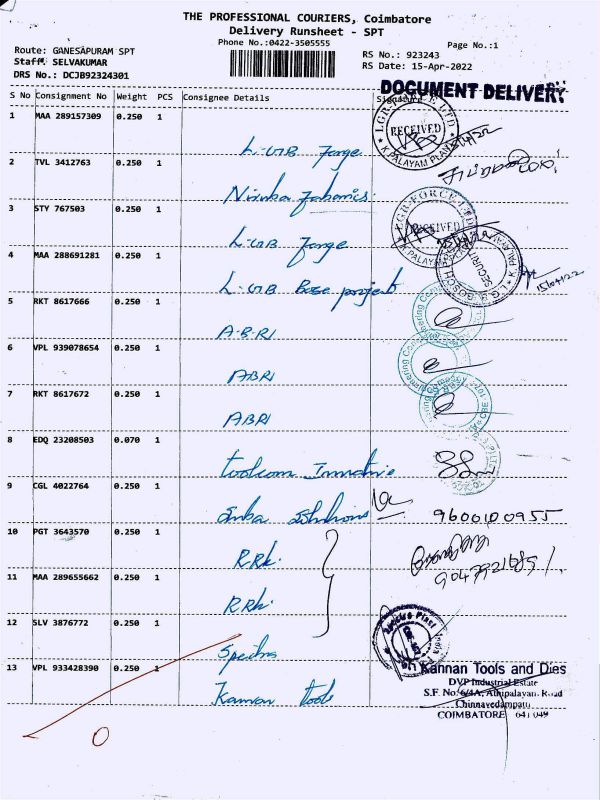 THE PROFESSIONAL COURIERS, Coimbatore
Delivery Runsheet - SPT
Phone No.:0422-3505555
Page No.:1
Route: GANESAPURAM SPT
Staff: SELVAKUMAR
DRS No.: DCJB92324301
RS No.: 923243
RS Date: 15-Apr-2022
DOCUMENT DELIVERY
S No Consignment No Weight PCS Consignee Details Signature
1 MAA 289157309 0.250 1 L.GB Forge
RECEIVED
K.PALAYAM PLANT
2 TVL 3412763 0.250 1
3 STY 767503 0.250 1 L.GB Forge
RECEIVED
4 MAA 288691281 0.250 1 L.GB Bose project
SECURITY
15/04/22
5 RKT 8617666 0.250 1 A.B.R1
6 VPL 939078654 0.250 1 ABR1
7 RKT 8617672 0.250 1 ABR1
8 EDQ 23208503 0.070 1 toolcom
9 CGL 4022764 0.250 1
9600100955
10 PGT 3643570 0.250 1 RRK.
11 MAA 289655662 0.250 1 RRK.
12 SLV 3876772 0.250 1
13 VPL 933428390 0.250 1 Kannan tools
Kannan Tools and Dies
DVP Industrial Estate
S.F. No. 6/4A, Athipalayan Road
Chinnavedampatti
COIMBATORE 641 049